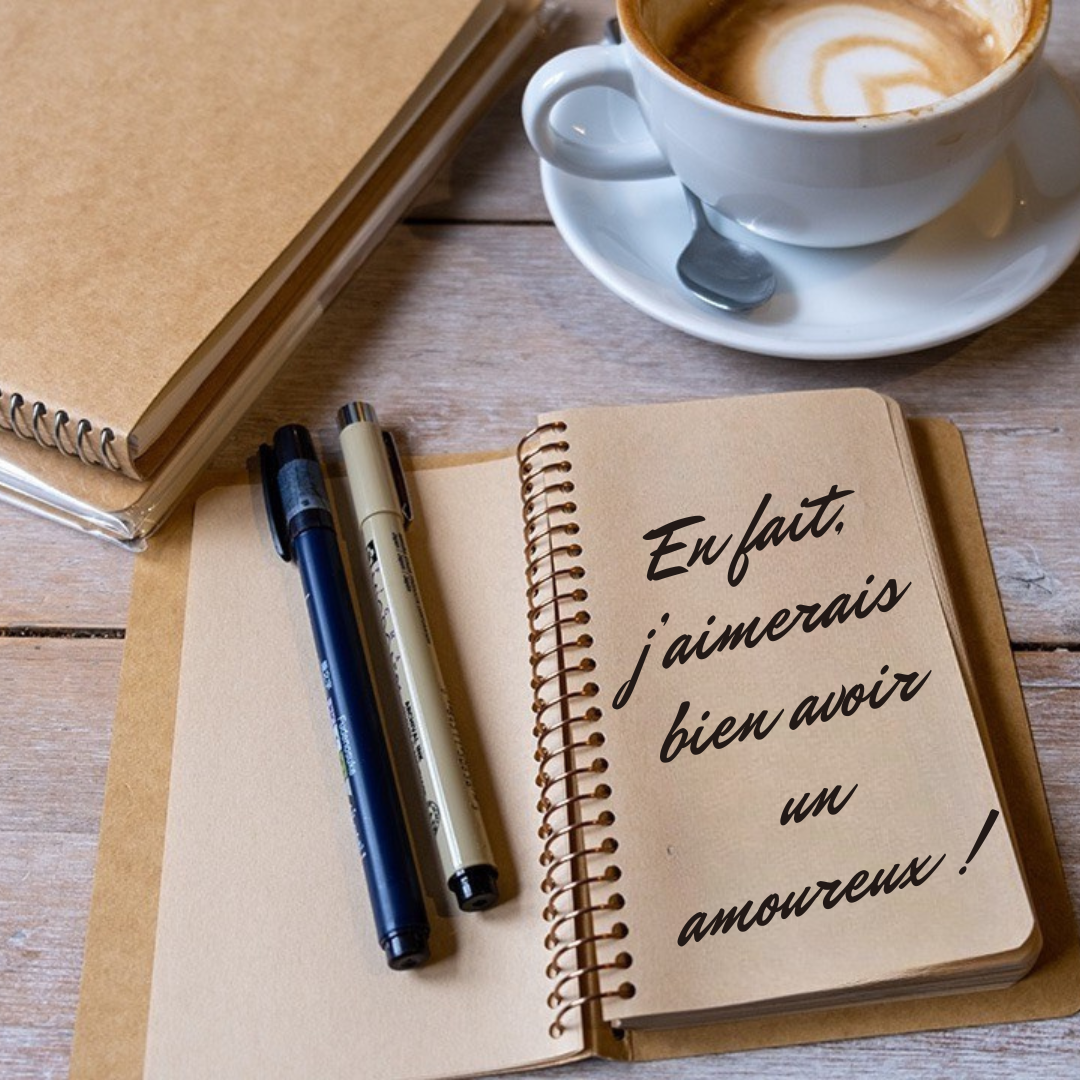 En fait,
j'aimerais
bien avoir
un
amoureux !